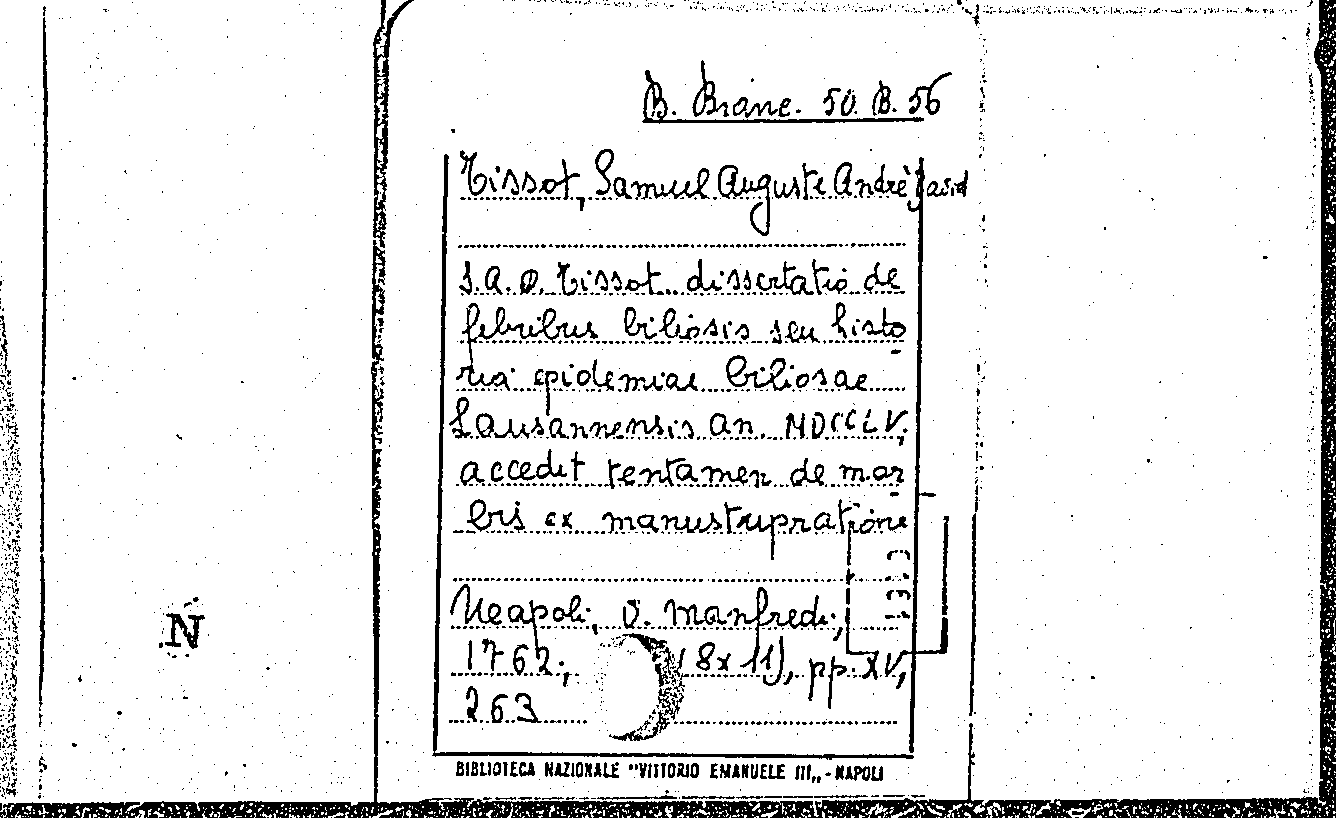 B. Branc. 50. B. 56
Tissot, Samuel Auguste André David
S. A. D. Tissot dissertatio de
febribus biliosis seu histo
ria epidemiae biliosae
Lausannensis an. MDCCLV,
accedit tentamen de mor
bis ex manustupratione
Neapoli, V. Manfredi,
N
1762, (8x11), pp. XV,
263
BIBLIOTECA NAZIONALE "VITTORIO EMANUELE III„ - NAPOLI